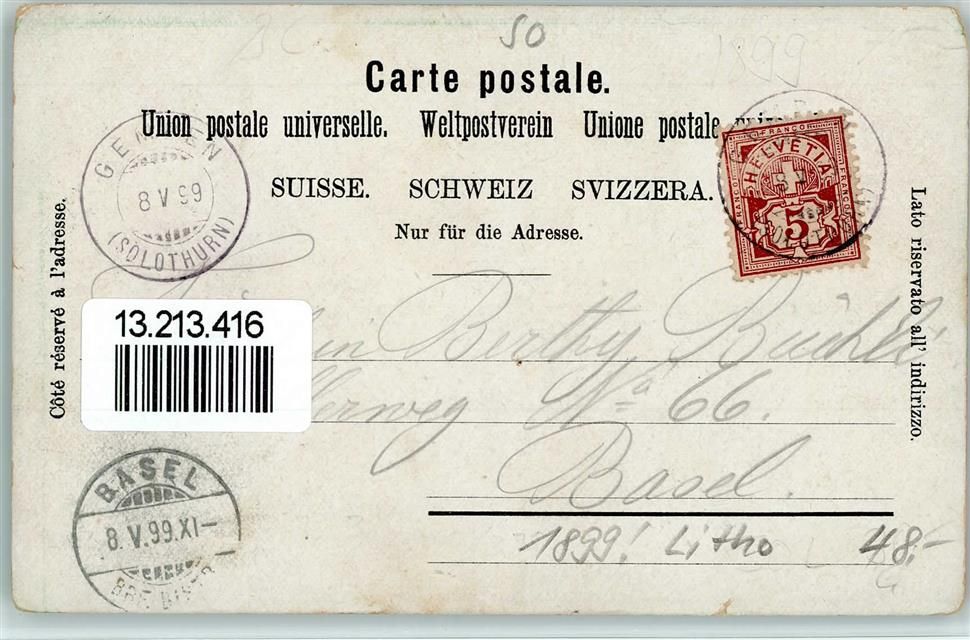 50
1899
Carte postale.
Union postale universelle. Weltpostverein Unione postale
SUISSE. SCHWEIZ SVIZZERA.
Nur für die Adresse.
Côté réservé à l'adresse.
Lato riservato all' indirizzo.
GEMPEN
8 V 99
(SOLOTHURN)
FRANCO
HELVETIA
FRANCO
FRANCO
5
13.213.416
Berthy
No 66.
Basel.
BASEL
8.V.99.XI-
1899! Litho 48.-